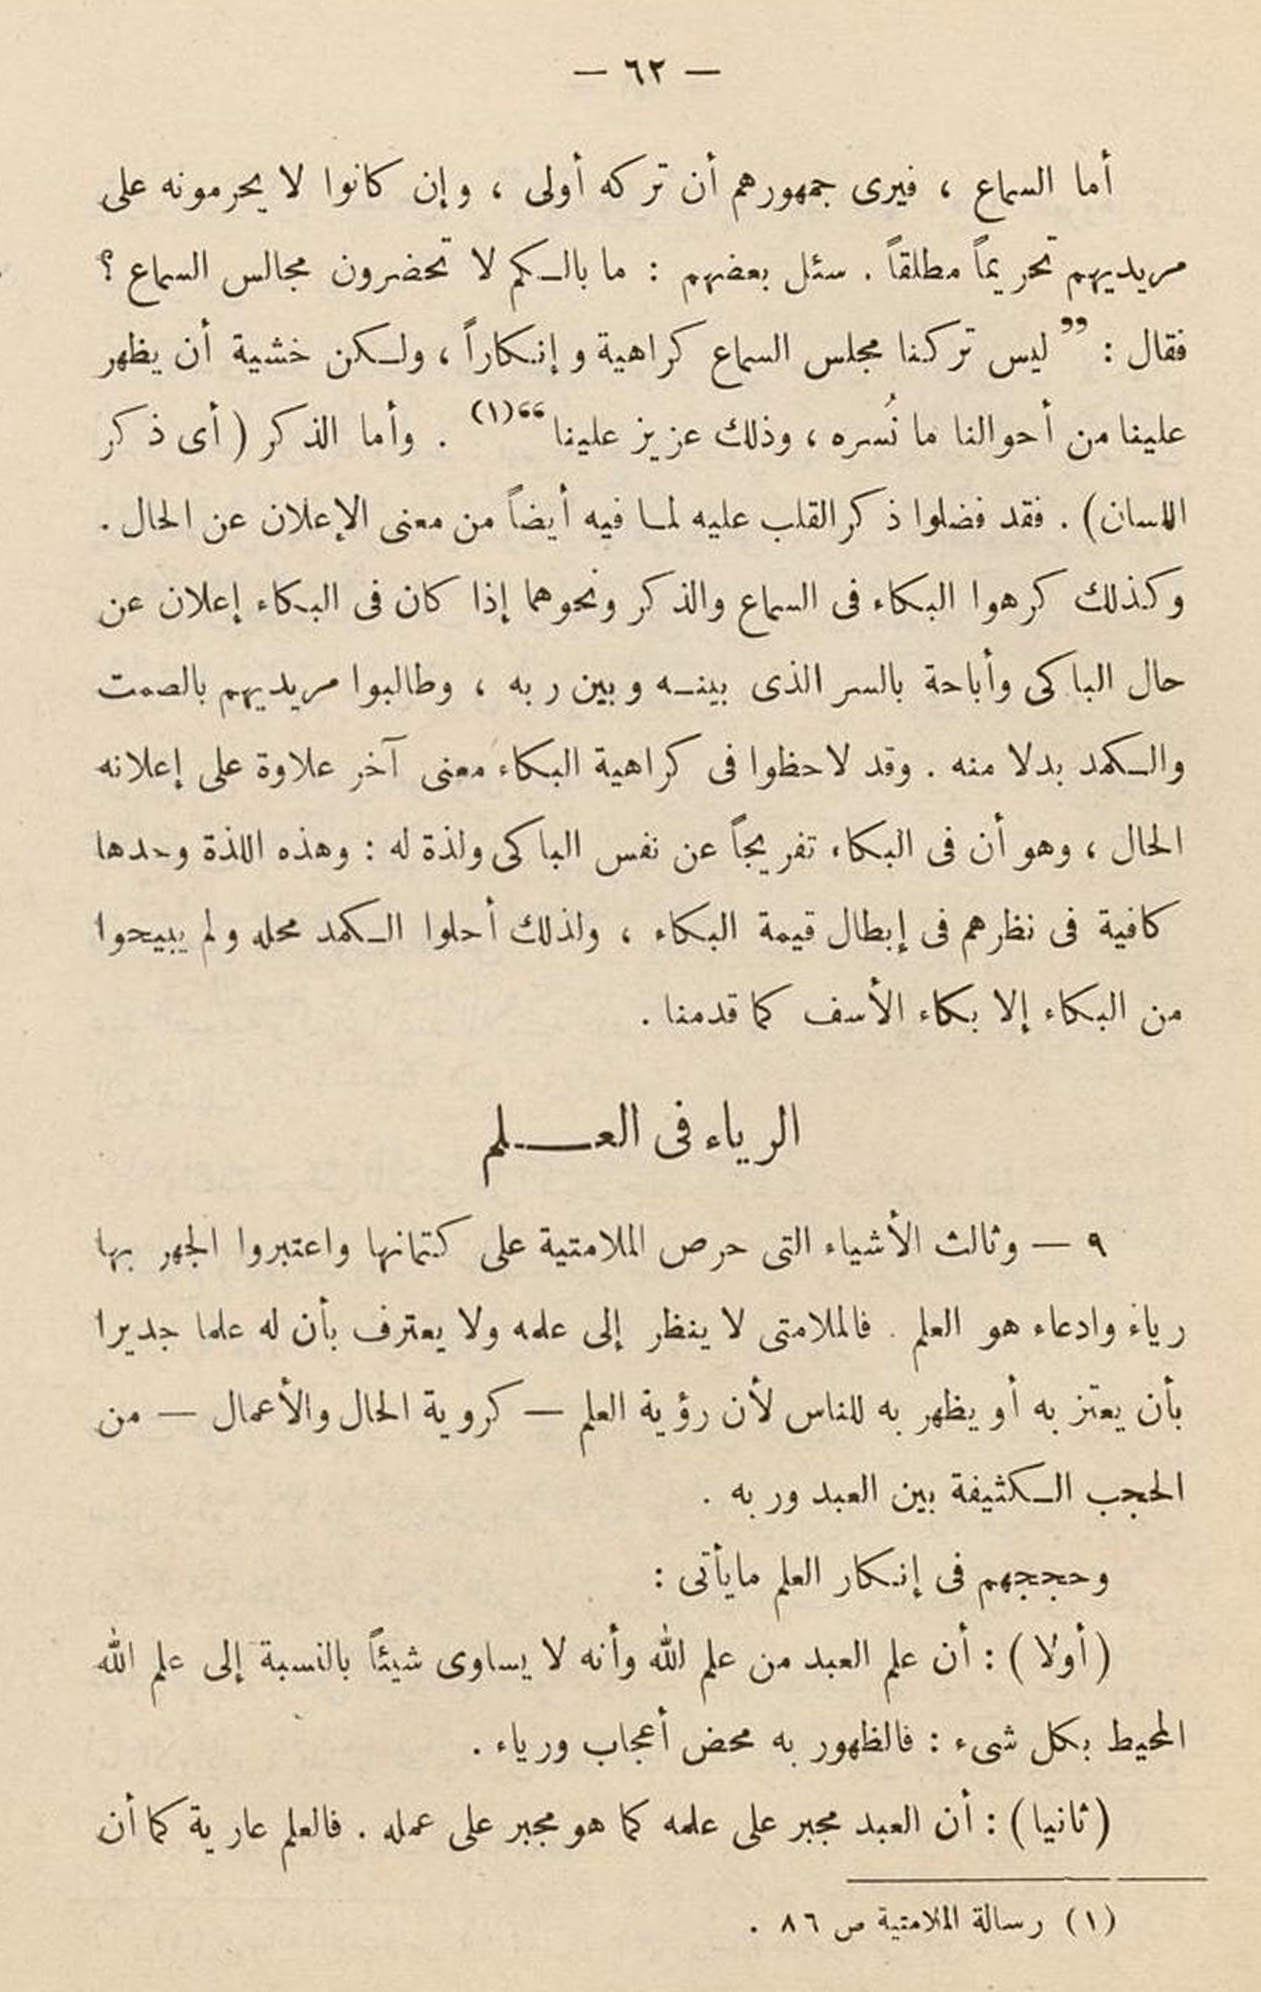 — ٦٢ —
أما السماع ، فيرى جمهورهم أن تركه أولى ، وإن كانوا لا يحرمونه على
مريديهم تحريماً مطلقاً . سئل بعضهم : ما بالكم لا تحضرون مجالس السماع ؟
فقال : ” ليس تركنا مجلس السماع كراهية وإنكاراً ، ولكن خشية أن يظهر
علينا من أحوالنا ما نُسره ، وذلك عزيز علينا “(١) . وأما الذكر ( أى ذكر
اللسان) . فقد فضلوا ذكر القلب عليه لما فيه أيضاً من معنى الإعلان عن الحال .
وكذلك كرهوا البكاء فى السماع والذكر ونحوهما إذا كان فى البكاء إعلان عن
حال الباكى وأباحة بالسر الذى بينه وبين ربه ، وطالبوا مريديهم بالصمت
والكمد بدلا منه . وقد لاحظوا فى كراهية البكاء معنى آخر علاوة على إعلانه
الحال ، وهو أن فى البكاء تفريجاً عن نفس الباكى ولذة له : وهذه اللذة وحدها
كافية فى نظرهم فى إبطال قيمة البكاء ، ولذلك أحلوا الكمد محله ولم يبيحوا
من البكاء إلا بكاء الأسف كما قدمنا .
الرياء فى العلم
٩ — وثالث الأشياء التى حرص الملامتية على كتمانها واعتبروا الجهر بها
رياء وادعاء هو العلم . فالملامتى لا ينظر إلى علمه ولا يعترف بأن له علما جديرا
بأن يعتز به أو يظهر به للناس لأن رؤية العلم — كروية الحال والأعمال — من
الحجب الكثيفة بين العبد وربه .
وحججهم فى إنكار العلم مايأتى :
(أولا) : أن علم العبد من علم الله وأنه لا يساوى شيئاً بالنسبة إلى علم الله
المحيط بكل شىء : فالظهور به محض أعجاب ورياء .
(ثانيا) : أن العبد مجبر على علمه كما هو مجبر على عمله . فالعلم عارية كما أن
(١) رسالة الملامتية ص ٨٦ .